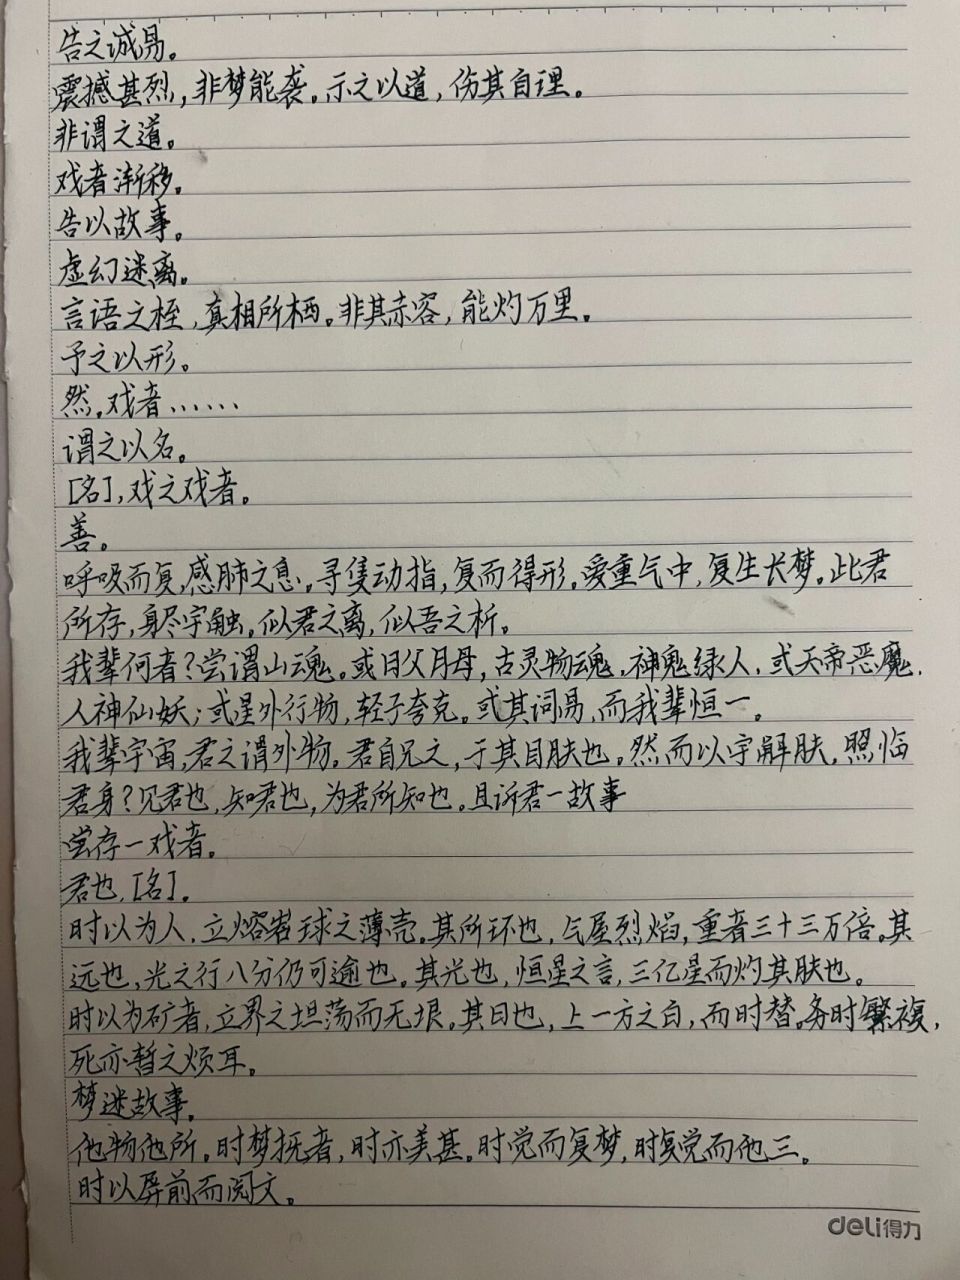 告之诚易。
震撼甚烈，非梦能袭。示之以道，伤其自理。
非谓之道。
戏者渐移。
告以故事。
虚幻迷离。
言语之桎，真相所栖。非其赤容，能灼万里。
予之以形。
然，戏者……
谓之以名。
[名]，戏之戏者。
善。
呼吸而复，感肺之息。寻隻动指，复而得形。受重气中，复生长梦。此君
所存，身尽宇触。似君之离，似吾之析。
我辈何者？尝谓山魂。或日父月母，古灵物魂，神鬼绿人，或天帝恶魔，
人神仙妖；或星外行物，轻子夸克。或其词易，而我辈恒一。
我辈宇宙，君之谓外物。君自见之，于其目肤也。然而以宇解肤，照临
君身？见君也，知君也，为君所知也。且诉君一故事
尝存一戏者。
君也，[名]。
时以为人，立熔岩球之薄壳。其所环也，气屋烈焰，重者三十三万倍。其
远也，光之行八分仍可逾也。其光也，恒星之言，三亿里而灼其肤也。
时以为矿者，立界之坦荡而无垠。其日也，上一方之白，而时替。务时繁複，
死亦暂之烦耳。
梦迷故事。
他物他所。时梦抚者，时亦美甚。时觉而复梦，时复觉而他三。
时以屏前而阅文。
deli得力